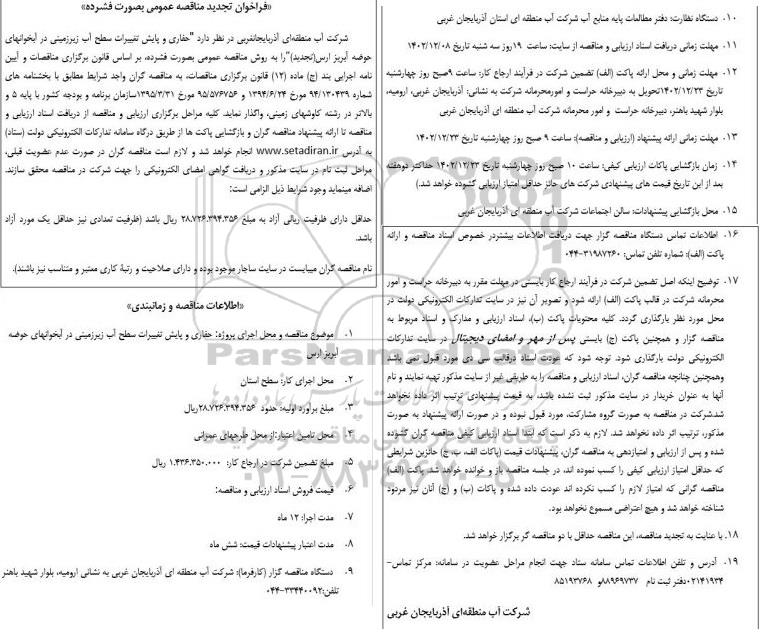 «فراخوان تجدید مناقصه عمومی بصورت فشرده»
شرکت آب منطقه‌ای آذربایجانغربی در نظر دارد "حفاری و پایش تغییرات سطح آب زیرزمینی در آبخوانهای
حوضه آبریز ارس(تجدید)"را به روش مناقصه عمومی بصورت فشرده، بر اساس قانون برگزاری مناقصات و آیین
نامه اجرایی بند (ج) ماده (۱۲) قانون برگزاری مناقصات، به مناقصه گران واجد شرایط مطابق با بخشنامه های
شماره ۹۴/۱۳۰۴۳۹ مورخ ۱۳۹۴/۶/۲۴ و ۹۵/۵۷۶۷۵۶ مورخ ۱۳۹۵/۳/۳۱سازمان برنامه و بودجه کشور با پایه ۵ و
بالاتر در رشته کاوشهای زمینی، واگذار نماید. کلیه مراحل برگزاری ارزیابی و مناقصه از دریافت اسناد ارزیابی و
مناقصه تا ارائه پیشنهاد مناقصه گران و بازگشایی پاکت ها از طریق درگاه سامانه تدارکات الکترونیکی دولت (ستاد)
به آدرس www.setadiran.ir انجام خواهد شد و لازم است مناقصه گران در صورت عدم عضویت قبلی،
مراحل ثبت نام در سایت مذکور و دریافت گواهی امضای الکترونیکی را جهت شرکت در مناقصه محقق سازند.
اضافه مینماید وجود شرایط ذیل الزامی است:
حداقل دارای ظرفیت ریالی آزاد به مبلغ ۲۸.۷۲۶.۳۹۴.۳۵۶ ریال باشد (ظرفیت تعدادی نیز حداقل یک مورد آزاد
باشد.
نام مناقصه گران میبایست در سایت ساجار موجود بوده و دارای صلاحیت و رتبهٔ کاری معتبر و متناسب نیز باشند).
«اطلاعات مناقصه و زمانبندی»
۱. موضوع مناقصه و محل اجرای پروژه: حفاری و پایش تغییرات سطح آب زیرزمینی در آبخوانهای حوضه
آبریز ارس
۲. محل اجرای کار: سطح استان
۳. مبلغ برآورد اولیه: حدود ۲۸.۷۲۶.۳۹۴.۳۵۶ریال
۴. محل تامین اعتبار:از محل طرحهای عمرانی
۵. مبلغ تضمین شرکت در ارجاع کار: ۱.۴۳۶.۳۵۰.۰۰۰ ریال
۶. قیمت فروش اسناد ارزیابی و مناقصه:
۷. مدت اجرا: ۱۲ ماه
۸. مدت اعتبار پیشنهادات قیمت: شش ماه
۹. دستگاه مناقصه گزار (کارفرما): شرکت آب منطقه ای آذربایجان غربی به نشانی ارومیه، بلوار شهید باهنر
تلفن:۳۳۴۴۰۰۹۲-۰۴۴
۱۰. دستگاه نظارت: دفتر مطالعات پایه منابع آب شرکت آب منطقه ای استان آذربایجان غربی
۱۱. مهلت زمانی دریافت اسناد ارزیابی و مناقصه از سایت: ساعت ۱۹روز سه شنبه تاریخ ۱۴۰۲/۱۲/۰۸
۱۲. مهلت زمانی و محل ارائه پاکت (الف) تضمین شرکت در فرآیند ارجاع کار: ساعت ۹صبح روز چهارشنبه
تاریخ ۱۴۰۲/۱۲/۲۳تحویل به دبیرخانه حراست و امورمحرمانه شرکت به نشانی: آذربایجان غربی، ارومیه،
بلوار شهید باهنر، دبیرخانه حراست و امور محرمانه شرکت آب منطقه ای آذربایجان غربی
۱۳. مهلت زمانی ارائه پیشنهاد (ارزیابی و مناقصه): ساعت ۹ صبح روز چهارشنبه تاریخ ۱۴۰۲/۱۲/۲۳
۱۴. زمان بازگشایی پاکات ارزیابی کیفی: ساعت ۱۰ صبح روز چهارشنبه تاریخ ۱۴۰۲/۱۲/۲۳ حداکثر دوهفته
بعد از این تاریخ قیمت های پیشنهادی شرکت های حائز حداقل امتیاز ارزیابی گشوده خواهد شد.)
۱۵. محل بازگشایی پیشنهادات: سالن اجتماعات شرکت آب منطقه ای آذربایجان غربی
۱۶. اطلاعات تماس دستگاه مناقصه گزار جهت دریافت اطلاعات بیشتردر خصوص اسناد مناقصه و ارائه
پاکت (الف): شماره تلفن تماس: ۳۱۹۸۷۲۶۰-۰۴۴
۱۷. توضیح اینکه اصل تضمین شرکت در فرآیند ارجاع کار بایستی در مهلت مقرر به دبیرخانه حراست و امور
محرمانه شرکت در قالب پاکت (الف) ارائه شود و تصویر آن نیز در سایت تدارکات الکترونیکی دولت در
محل مورد نظر بارگذاری گردد. کلیه محتویات پاکت (ب)، اسناد ارزیابی و مدارک و اسناد مربوط به
مناقصه گزار و همچنین پاکت (ج) بایستی پس از مهر و امضای دیجیتال در سایت تدارکات
الکترونیکی دولت بارگذاری شود. توجه شود که عودت اسناد درقالب سی دی مورد قبول نمی باشد
وهمچنین چنانچه مناقصه گران، اسناد ارزیابی و مناقصه را به طریقی غیر از سایت مذکور تهیه نمایند و نام
آنها به عنوان خریدار در سایت مذکور ثبت نشده باشد، به قیمت پیشنهادی ترتیب اثر داده نخواهد
شد.شرکت در مناقصه به صورت گروه مشارکت، مورد قبول نبوده و در صورت ارائه پیشنهاد به صورت
مذکور، ترتیب اثر داده نخواهد شد. لازم به ذکر است که ابتدا اسناد ارزیابی کیفی مناقصه گران گشوده
شده و پس از ارزیابی و امتیازدهی به مناقصه گران، پیشنهادات قیمت (پاکات الف، ب، ج) حائزین شرایطی
که حداقل امتیاز ارزیابی کیفی را کسب نموده اند، در جلسه مناقصه باز و خوانده خواهد شد. پاکت (الف)
مناقصه گرانی که امتیاز لازم را کسب نکرده اند عودت داده شده و پاکات (ب) و (ج) آنان نیز مردود
شناخته خواهد شد و هیچ اعتراضی مسموع نخواهد بود.
۱۸. با عنایت به تجدید مناقصه، این مناقصه حداقل با دو مناقصه گر برگزار خواهد شد.
۱۹. آدرس و تلفن اطلاعات تماس سامانه ستاد جهت انجام مراحل عضویت در سامانه: مرکز تماس-
۰۲۱۴۱۹۳۴دفتر ثبت نام ۸۸۹۶۹۷۳۷و ۸۵۱۹۳۷۶۸
شرکت آب منطقه‌ای آذربایجان غربی
ParsNamadData
۰۲۱-۸۸۳۴۹۶۷۰-۵